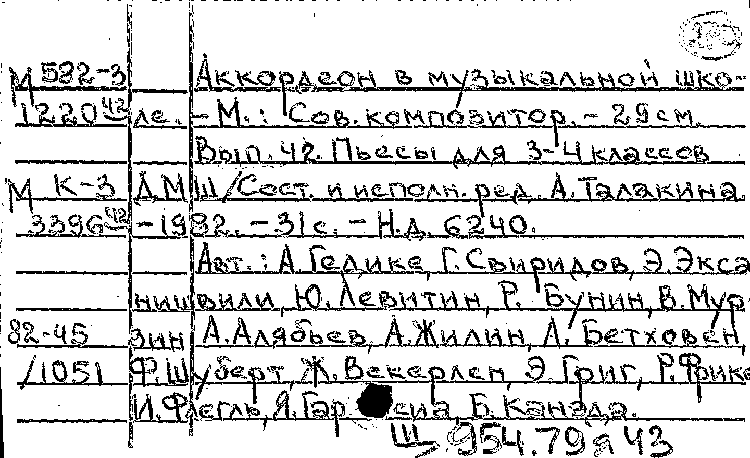 М 532-3 Аккордеон в музыкальной шко-
1220 42 ле. - М. : Сов. композитор. - 29 см.
Вып. 42. Пьесы для 3-4 классов
М К-3 ДМШ / Сост. и исполн. ред. А. Талакина.
3396 42 - 1982. - 31 с. - Н.д. 6240.
Авт. : А. Гедике, Г. Свиридов, Э. Экса
нишвили, Ю. Левитин, Р. Бунин, В. Мур
82-45 зин, А. Алябьев, А. Жилин, Л. Бетховен,
/1051 Ф. Шуберт, Ж. Векерлен, Э. Григ, Р. Фрике
И. Флегль, Я. Гар сиа, Б. Канада.
Щ 954.79 я 43